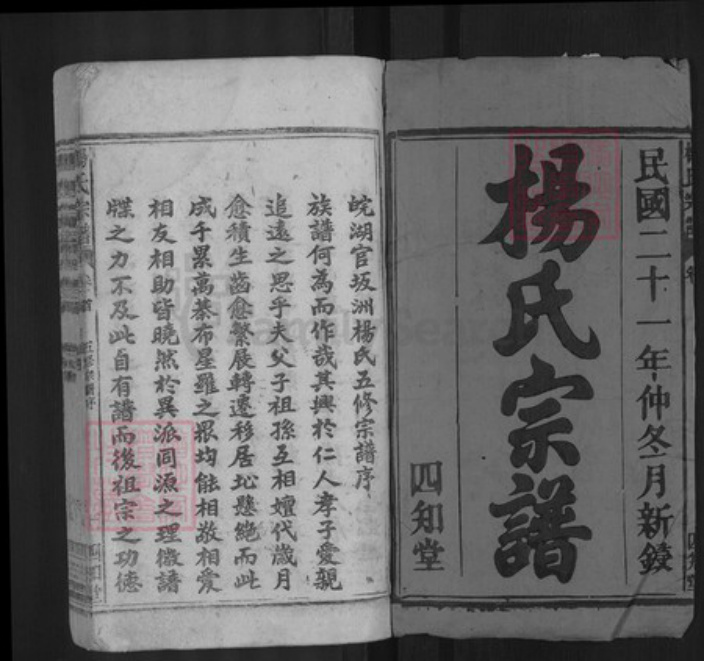 民國二十一年仲冬月新鐫
楊氏宗譜
四知堂
皖湖官坂洲楊氏五修宗譜序
族譜何為而作哉其興於仁人孝子愛親
追遠之思乎夫父子祖孫互相嬗代歲月
愈積生齒愈繁展轉遷移居址懸絕而此
成千累萬棊布星羅之眾均能相敬相愛
相友相助皆曉然於異派同源之理微譜
牒之力不及此自有譜而後祖宗之功德
楊氏宗譜
卷首
四知堂